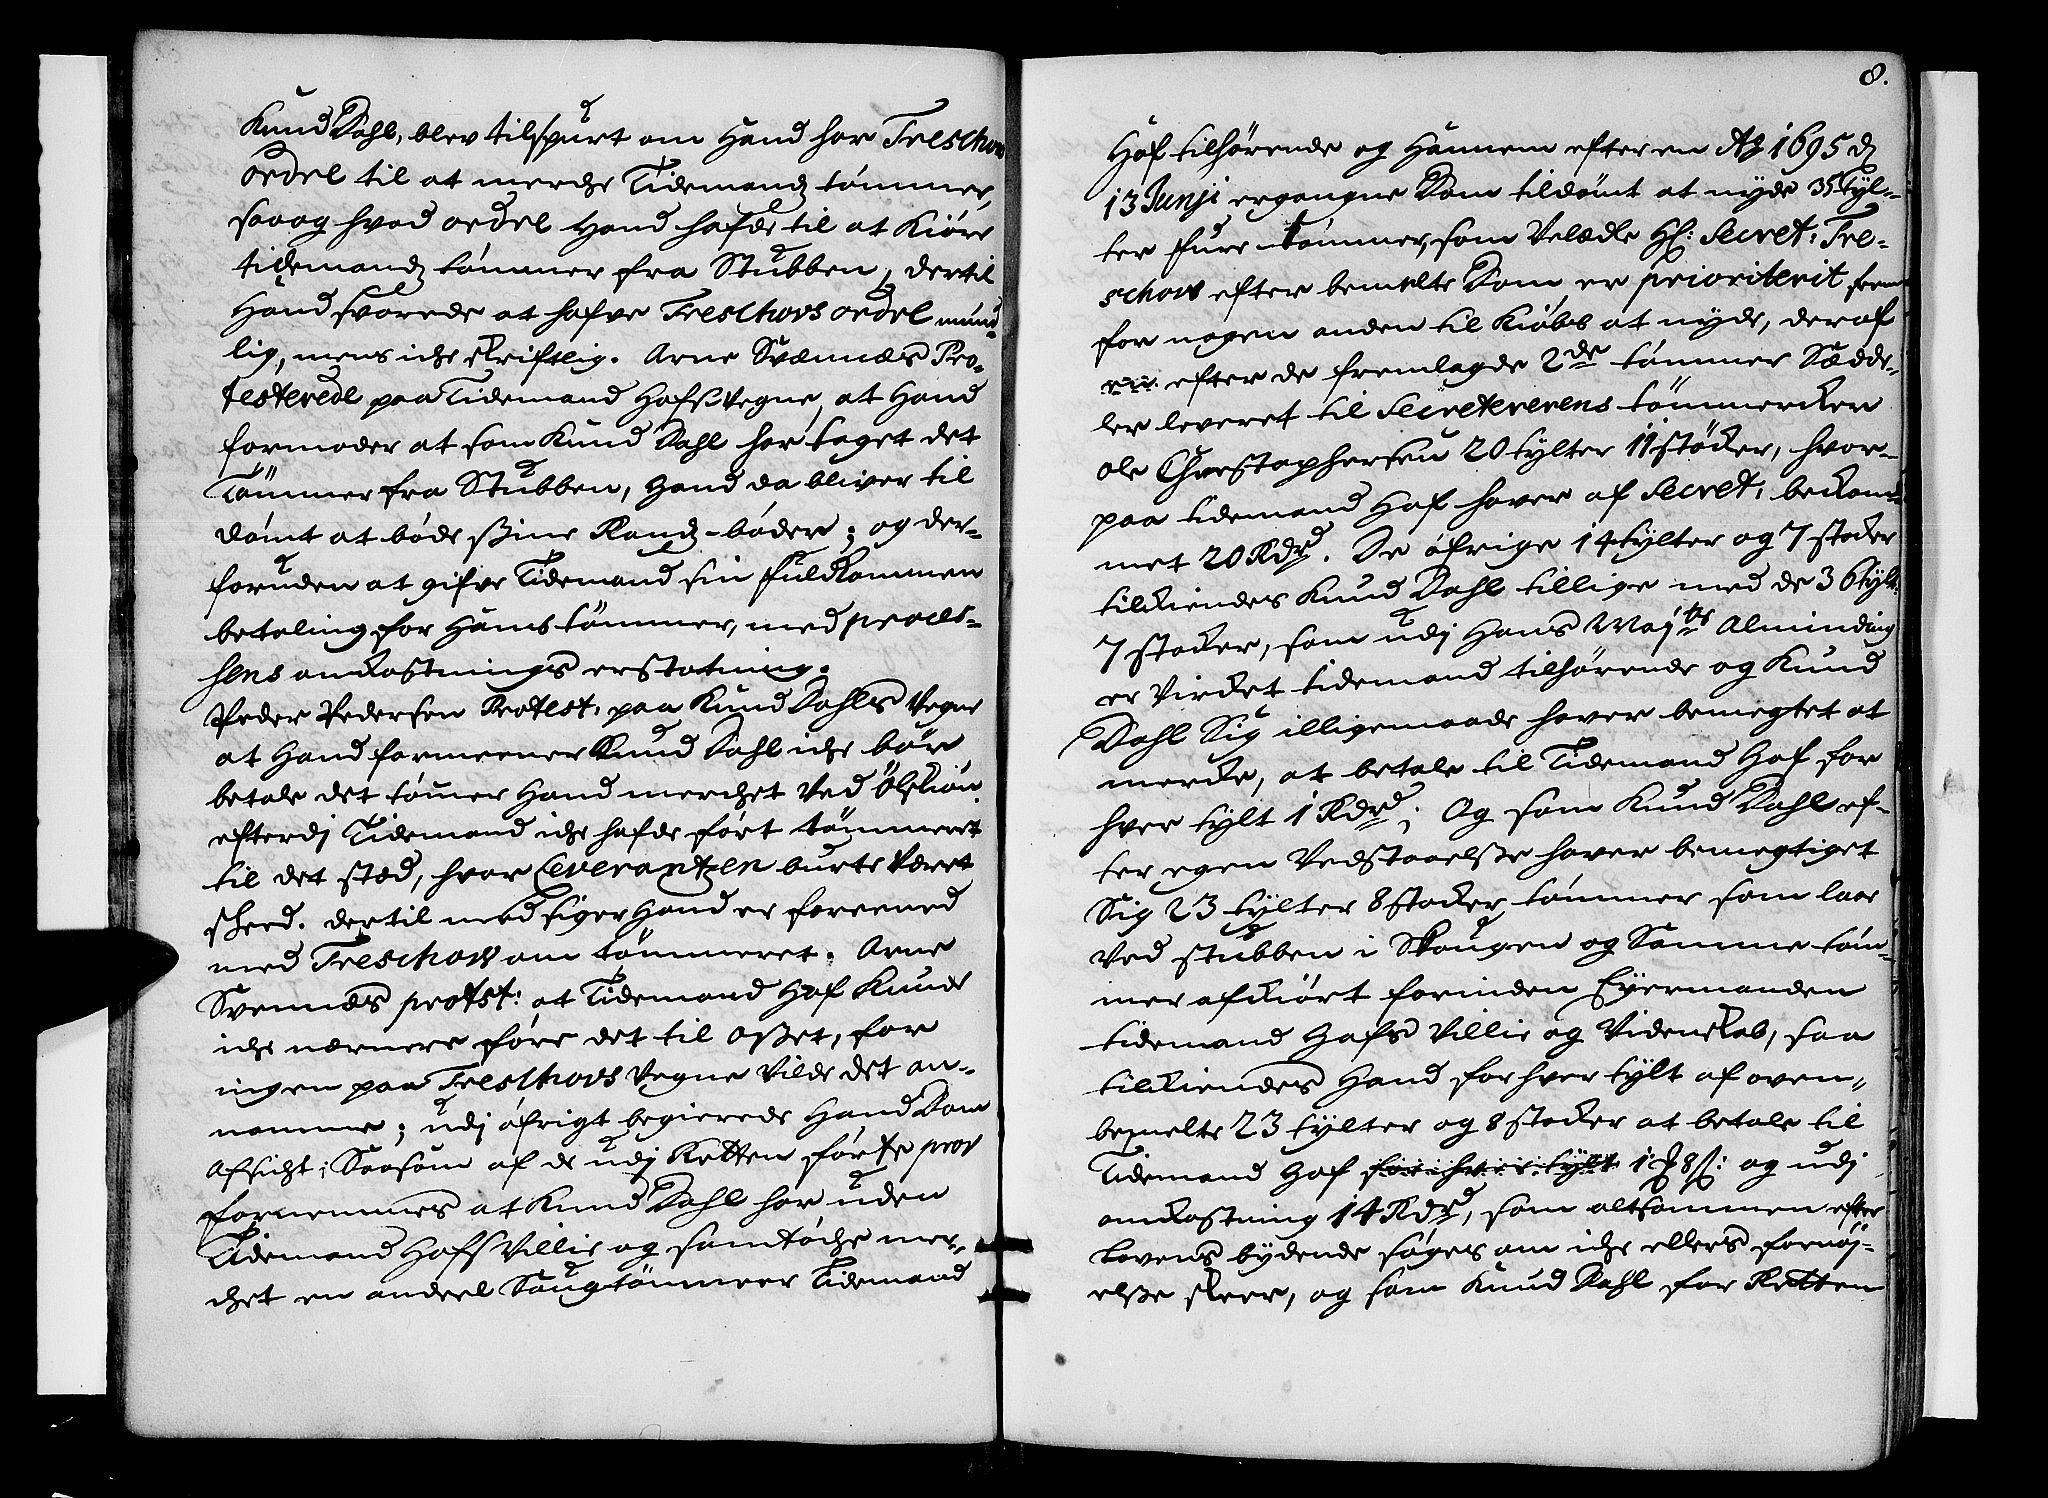 Knud Dahl, blev tilspurt om Hand har Treschow
ordel til at merche Tidemands tømmer,
saaog hvad ordel Hand hafde til at Kiöre
tidemands tømmer fra Stubben, dertil
Hand svarede at hafve Treschovs ordel mund-
lig, mens iche skriftlig. Arne Svennæs Pro-
testerede paa Tidemand Hofs Vegne, at Hand
formoder at som Knud Dahl har taget det
Tömmer fra Stubben, Hand da bliver til
dömt at böde sine Rands-böder; og der-
foruden at gifve Tidemand sin fuldkommen
betaling for Hans tömmer, med proces-
sens omkostnings erstatning.
Peder Pedersen Protest: paa Knud Dahls Vegne
at Hand formeener Knud Dahl iche bör
betale det tömer Hand merchet Ved
efterdj Tidemand iche hafde fört tömmeret
til det stæd, hvor Leverantzen burte Været
skeed. dertil med siger Hand er foreened
med Treschow om tömmeret. Arne
Svennæs protst: at Tidemand Hof Kunde
iche nærmere före det til Osset, for
ingen paa Treschovs Vegne Vilde det an-
namme; udj öfrigt begierede Hand Dom
Afsicht; Saasom af de udj Retten förte prov
fornemmes at Knud Dahl har uden
Tidemand Hofs Villie og samtöche mer-
chet en andeel Saugtömmer Tidemand
8.
Hof tilhörende og Hannem efter en Ao 1695 d
13 Junji ergangne Dom tildömt at nyde 35 tyl-
ter fure tömmer, som Velædle Hr: Secret: Tre-
schow efter bemelte Dom er prioriterit frem
for nogen anden til Kiöbs at nyde, deraf
er efter de fremlagde 2de tömmer Sædde-
ler leveret til Secreterens tömmerker
Ole Christophersen 20 tylter 11 stöcker, hvor-
paa tidemand Hof haver af Secret: bekom-
met 20 Rdr. De öfrige 14 tylter og 7 stocker
tilkiendes Knud Dahl tillige med de 36 tylt:
7 stocker, som udj Hans Majts Alminding
er Virket tidemand tilhörende og Knud
Dahl Sig illigemaade haver bemegtet at
merke, at betale til Tidemand Hof for
hver tylt 1 Rdr; Og som Knud Dahl ef-
ter egen Vedstaaelse haver bemegtiget
Sig 23 tylter 8 stocker tömmer som laae
Ved stubben i Skougen og Samme töm-
mer afkiört forinden Eyermanden
tidemand Hofs Villie og Videnskab, saa
tilkiendes Hand for hver tylt af oven-
bemelte 23 tylter og 8 stocker at betale til
Tidemand Hof for hver tylt 1 8 s: og udj
omkostning 14 Rdr, som altsammen efter
Lovens bydende söges om iche ellers fornöj-
else skeer, og som Knud Dahl for Retten